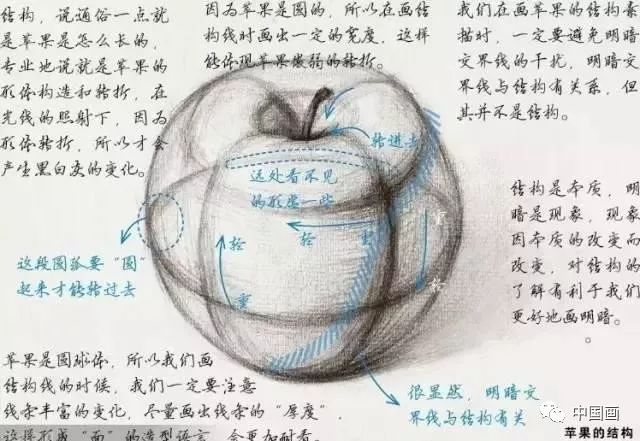 结构，说通俗一点就
是苹果是怎么长的，
专业地说就是苹果的
形体构造和转折，在
光线的照射下，因为
形体转折，所以才会
产生黑白灰的变化。
因为苹果是圆的，所以在画结
构线时画出一定的宽度，这样
能体现苹果微弱的转折。
我们在画苹果的结构素
描时，一定要避免明暗
交界线的干扰，明暗交
界线与结构有关系，但
其并不是结构。
转进去
远处看不见
的形虚一些
轻
轻
重
重
重
轻
结构是本质，明
暗是现象，现象
因本质的改变而
改变，对结构的
了解有利于我们
更好地画明暗。
这段圆弧要“圆”
起来才能转过去
苹果是圆球体，所以我们画
结构线的时候，我们一定要注意
线条丰富的变化，尽量画出线条的“厚度”，
这样形成“面”的造型语言，会更加耐看。
很显然，明暗交
界线与结构有关
中国画
苹果的结构